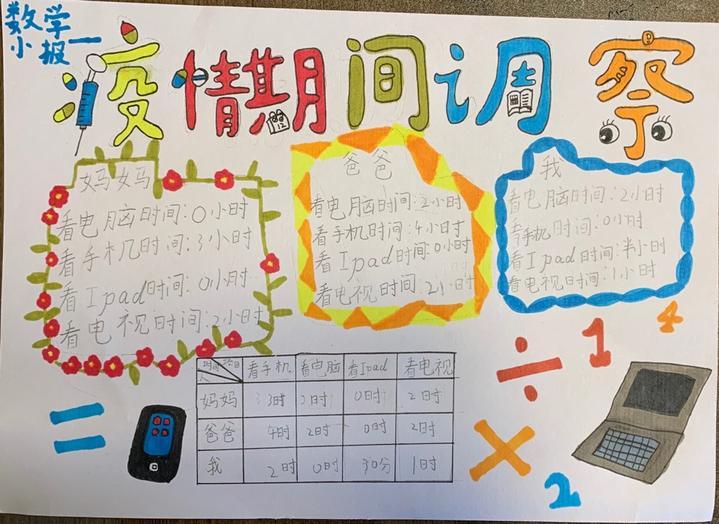 数学
小报
疫情期间调察
妈妈
看电脑时间:0小时
看手机时间:3小时
看Ipad时间:0小时
看电视时间:2小时
爸爸
看电脑时间:2小时
看手机时间:4小时
看Ipad时间:0小时
看电视时间:2小时
我
看电脑时间:2小时
看手机时间:0小时
看Ipad时间:半小时
看电视时间:1小时
÷ 1 4
看手机 看电脑 看Ipad 看电视
妈妈 3时 0时 2时
爸爸 4时 2时 0时 2时
我 2时 0时 30分 1时
= × 2